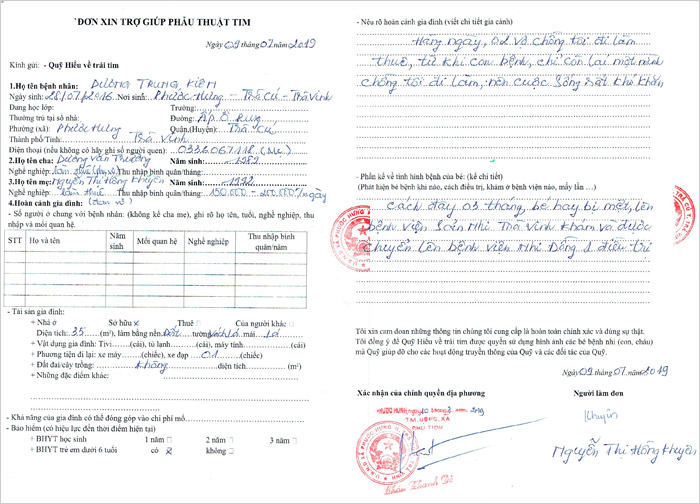 ĐƠN XIN TRỢ GIÚP PHẪU THUẬT TIM
Ngày 09 tháng 07/2019
Kính gửi: - Quỹ Hiểu về trái tim
1.Họ tên bệnh nhân: Dương Trung Kiên
Ngày sinh: 28/07/2016 Nơi sinh: Phước Hưng - Trà Cú - Trà Vinh
Đang học lớp: Trường:
Thường trú tại số nhà: Đường: Ấp Ô Rung
Phường (xã): Phước Hưng Quận.(Huyện): Trà Cú
Thành phố/Tỉnh: Trà Vinh
Điện thoại (nếu không có hãy ghi số người quen): (Mẹ)
2.Họ tên cha: Dương Văn Thường Năm sinh: 1989
Nghề nghiệp: Làm thuê Thu nhập bình quân/tháng:
3.Họ tên mẹ: Nguyễn Thị Hồng Khuyên Năm sinh: 1992
Nghề nghiệp: Làm thuê Thu nhập bình quân/tháng: 150.000 - 200.000/ngày
4.Hoàn cảnh gia đình:
- Số người ở chung với bệnh nhân: (không kể cha mẹ), ghi rõ họ tên, tuổi, nghề nghiệp, thu
nhập và mối quan hệ.
STT Họ và tên Năm sinh Mối quan hệ Nghề nghiệp Thu nhập bình quân/năm
- Tài sản gia đình:
+ Nhà ở Sở hữu x Thuê Của người khác
Diện tích: 35 (m²), làm bằng nền Đất tường Vách Lá mái Lá
+ Vật dụng gia đình: Tivi (cái), tủ lạnh (cái), máy tính (cái)
+ Phương tiện đi lại: xe máy (chiếc), xe đạp 01 (chiếc)
+ Đất đai/cây trồng: Không diện tích (m²)
+ Những đặc điểm khác:
- Khả năng của gia đình có thể đóng góp vào chi phí mổ
- Bảo hiểm (có hiệu lực đến thời điểm hiện tại)
+ BHYT học sinh 1 năm 2 năm 3 năm
+ BHYT trẻ em dưới 6 tuổi có x không
- Nêu rõ hoàn cảnh gia đình (viết chi tiết gia cảnh)
Hàng ngày, 02 vợ chồng tôi đi làm
thuê, từ khi con bệnh, chỉ còn lại một mình
chồng tôi đi làm, nên cuộc sống rất khó khăn
- Phần kể về tình hình bệnh của bé: (kể chi tiết)
(Phát hiện bé bệnh khi nào, cách điều trị, khám ở bệnh viện nào, mấy lần …)
Cách đây 03 tháng, bé hay bị mệt, lên
bệnh viện Sản Nhi Trà Vinh khám và được
chuyển lên bệnh viện Nhi Đồng 1 điều trị
Tôi xin cam đoan những thông tin chúng tôi cung cấp là hoàn toàn chính xác và đúng sự thật.
Tôi đồng ý để Quỹ Hiểu về trái tim được quyền sử dụng hình ảnh các bé bệnh nhi (con, cháu)
mà Quỹ giúp đỡ cho các hoạt động truyền thông của Quỹ và các đối tác của Quỹ.
Ngày 09 tháng 07/2019
Xác nhận của chính quyền địa phương Người làm đơn
TM. UBND. XÃ
Khuyên
Nguyễn Thị Hồng Khuyên